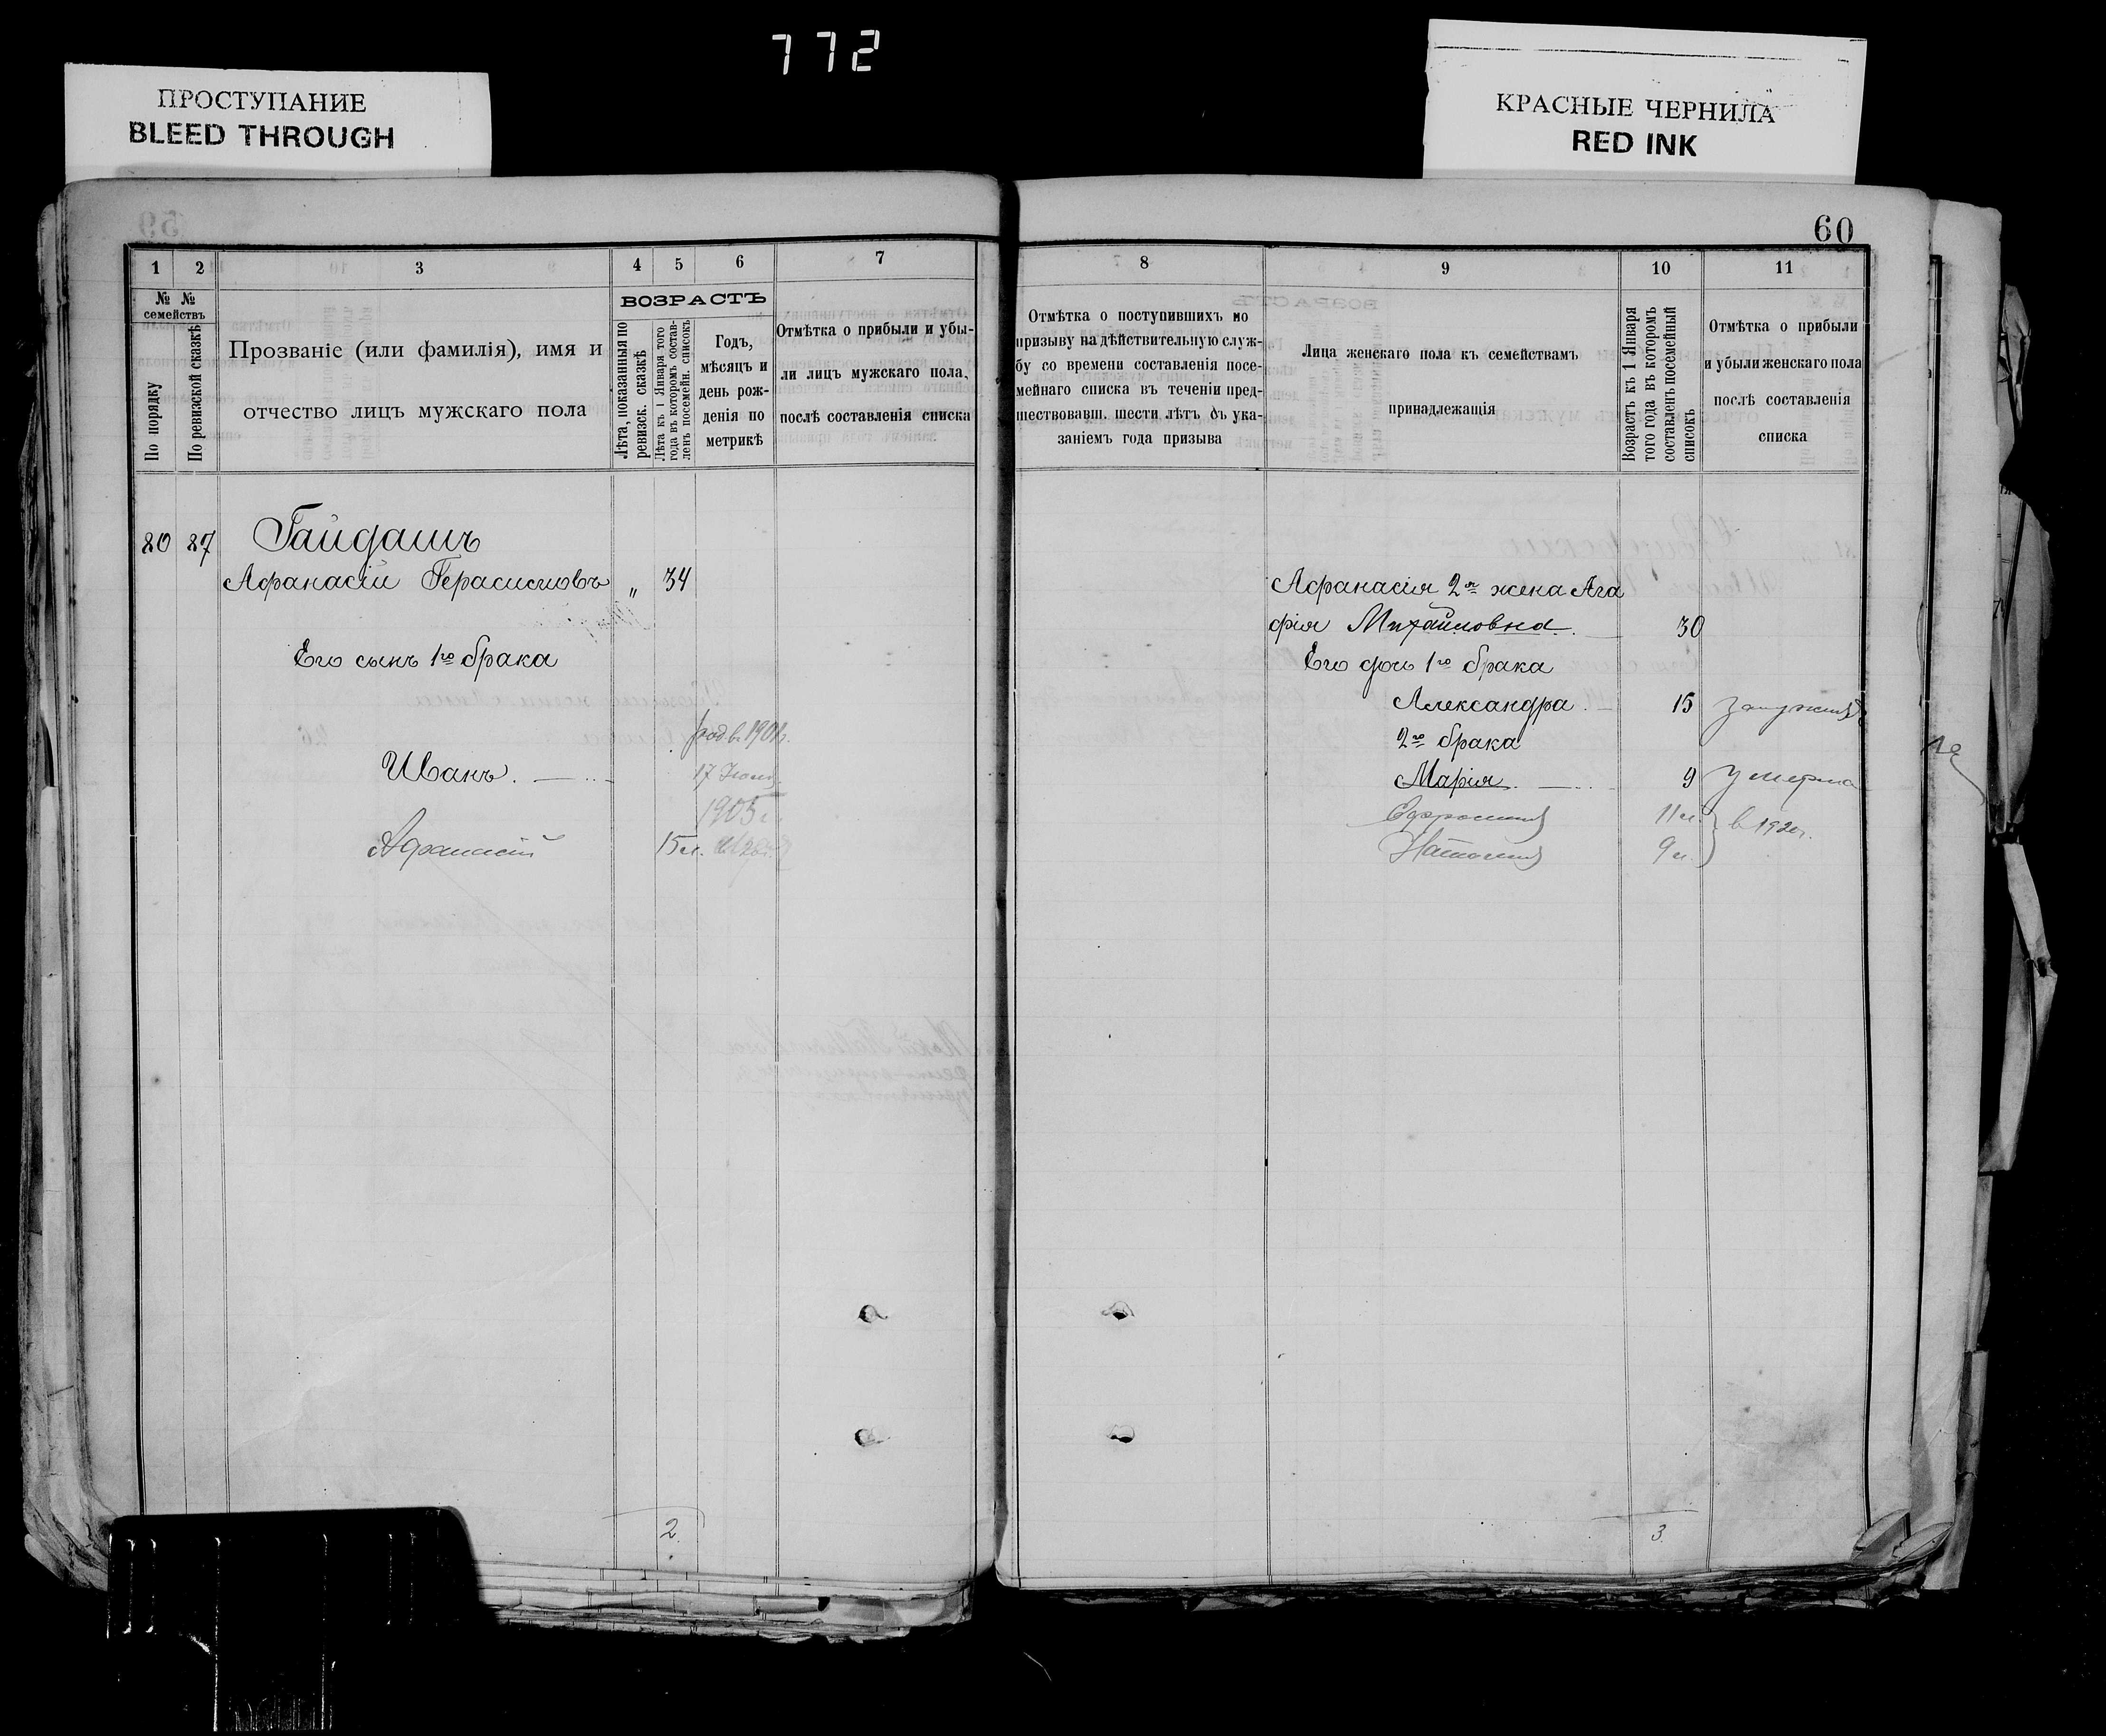 772
ПРОСТУПАНИЕ
BLEED THROUGH
КРАСНЫЕ ЧЕРНИЛА
RED INK
59
60
1
2
3
4
5
6
7
№ №
семействъ
По порядку
По ревизской сказкѣ
Прозваніе (или фамилія), имя и
отчество лицъ мужскаго пола
ВОЗРАСТЪ
Лѣта, показанныя по
ревизск. сказкѣ
Лѣта къ 1 Января того
года въ которомъ состав-
ленъ посемейн. списокъ
Годъ,
мѣсяцъ и
день рож-
денія по
метрикѣ
Отмѣтка о прибыли и убы-
ли лицъ мужскаго пола,
послѣ составленія списка
20 27 Гайдашъ
Афанасій Герасимовъ „ 34
Его сынъ 1го брака
род в. 1901г.
Иванъ. 17 Июня
1905 г.
Афанасій 15 л.
2.
8
9
10
11
Отмѣтка о поступившихъ по
призыву на дѣйствительную служ-
бу со времени составленія посе-
мейнаго списка въ теченіи пред-
шествовавш. шести лѣтъ съ ука-
заніемъ года призыва
Лица женскаго пола къ семействамъ
принадлежащія
Возрастъ къ 1 Января
того года въ которомъ
составленъ посемейный
списокъ
Отмѣтка о прибыли
и убыли женскаго пола
послѣ составленія
списка
Афанасія 2я жена Ага
фія Михайловна. 30
Его дочь 1го брака
Александра. 15 замужем
2го брака
Марія. 9 умерла
11 л. в 1920г.
9 л.
3.